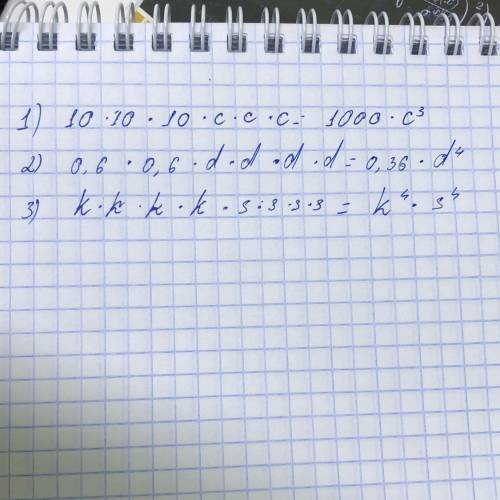 1) 10 · 10 · 10 · c · c · c = 1000 · c³
2) 0,6 · 0,6 · d · d · d · d = 0,36 · d⁴
3) k · k · k · k · s · s · s · s = k⁴ · s⁴